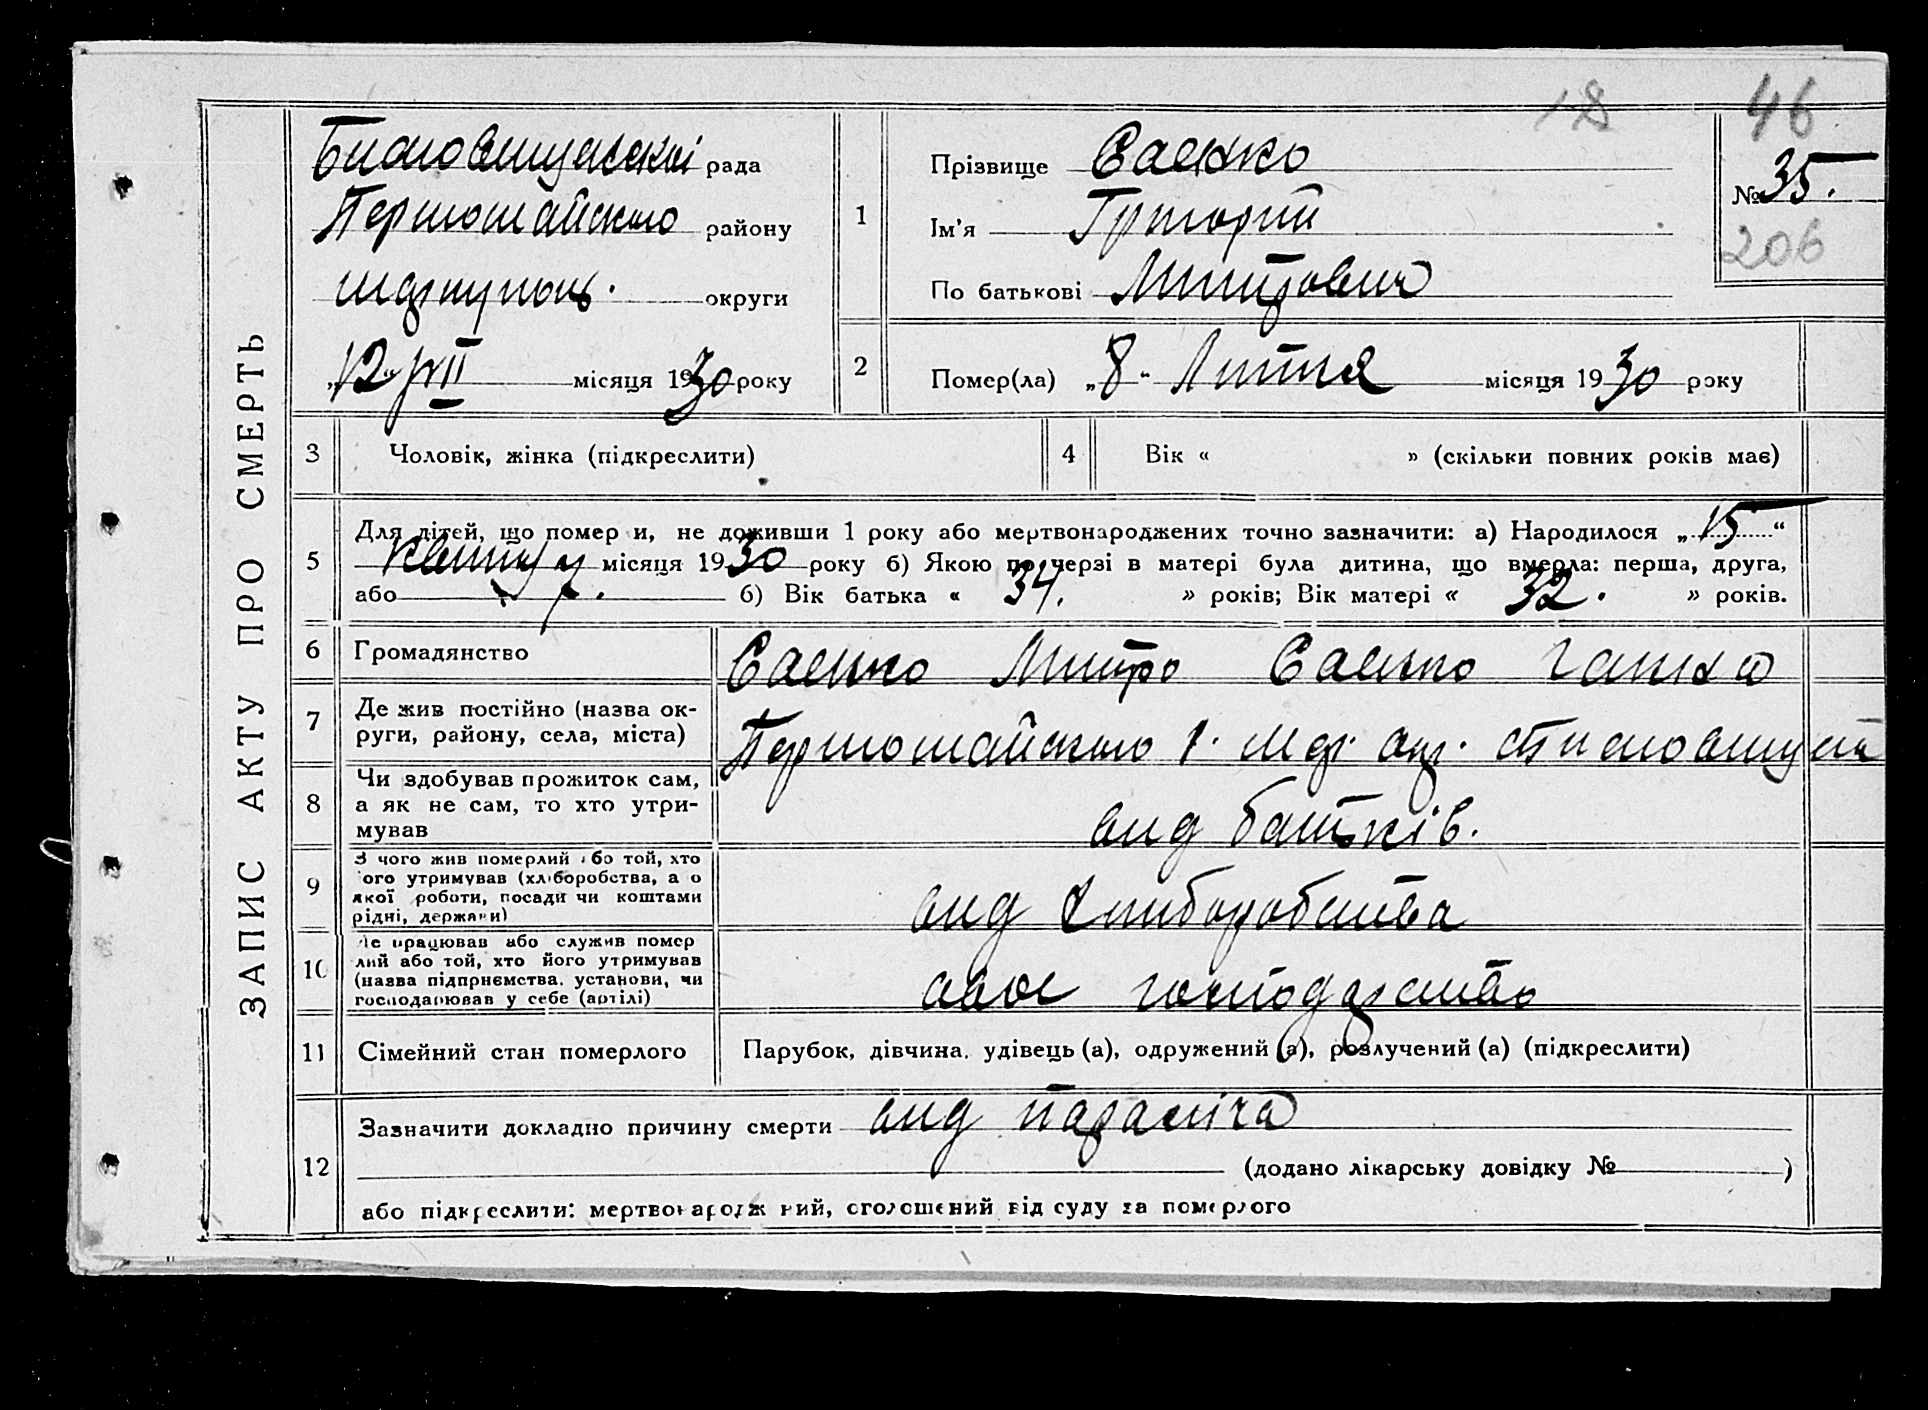 46
ЗАПИС АКТУ ПРО СМЕРТЬ
рада
Первомайського району
округи
„12“ VII місяця 1930 року
1
Прізвище Саєнко
Ім'я Григорий
По батькові Митрович
№ 35.
206
2
Помер(ла) „8“ Липня місяця 1930 року
3 Чоловік, жінка (підкреслити)
4 Вік « » (скільки повних років має)
5
Для дітей, що померли, не доживши 1 року або мертвонароджених точно зазначити: а) Народилося „15“
місяця 1930 року б) Якою по черзі в матері була дитина, що вмерла: перша, друга,
або б) Вік батька « 34. » років; Вік матері « 32. » років.
6 Громадянство Саенко Митро Саенко Ганна
7 Де жив постійно (назва ок-
руги, району, села, міста) Первомайського р.
8 Чи здобував прожиток сам,
а як не сам, то хто утри-
мував вид батьків.
9 З чого жив померлий або той, хто
його утримував (хліборобства, а о
якої роботи, посади чи коштами
рідні, держави) вид хлиборобства
10 Де працював або служив помер
лий або той, хто його утримував
(назва підприємства, установи, чи
господарював у себе (артілі) своє господарство
11 Сімейний стан померлого Парубок, дівчина, удівець (а), одружений (а), розлучений (а) (підкреслити)
12
Зазначити докладно причину смерти вид
(додано лікарську довідку № )
або підкреслити: мертвонароджений, оголошений від суду за померлого